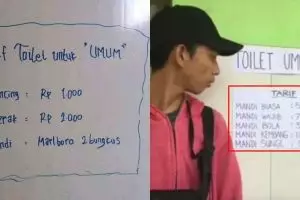 Toilet untuk "UMUM"
: Rp 1.000
: Rp 2.000
: Marlboro 2 bungkus
TOILET UM
TARIF
MANDI BIASA :
MANDI WAJIB :
MANDI BOLA :
MANDI KEMBANG :
MANDI